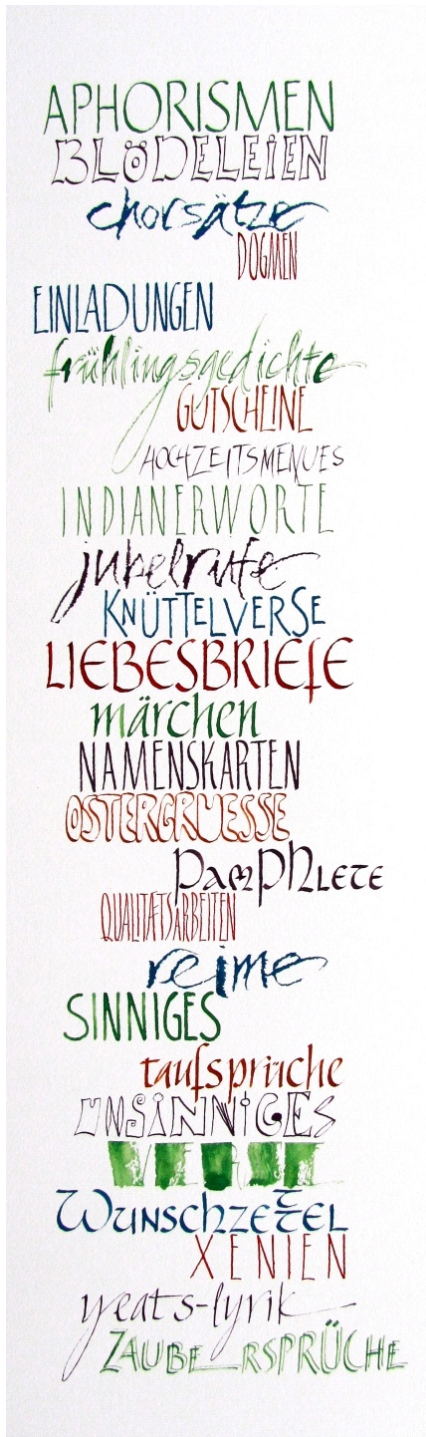 APHORISMEN
BLÖDELEIEN
chorsätze
DOGMEN
EINLADUNGEN
frühlingsgedichte
GUTSCHEINE
HOCHZEITSMENUES
INDIANERWORTE
jubelrufe
KNÜTTELVERSE
LIEBESBRIEFE
märchen
NAMENSKARTEN
OSTERGRUESSE
PAMPHLETE
QUALITÆTSARBEITEN
reime
SINNIGES
taufsprüche
UNSINNIGES
VERSE
WUNSCHZETTEL
XENIEN
yeats-lyrik
ZAUBERSPRÜCHE